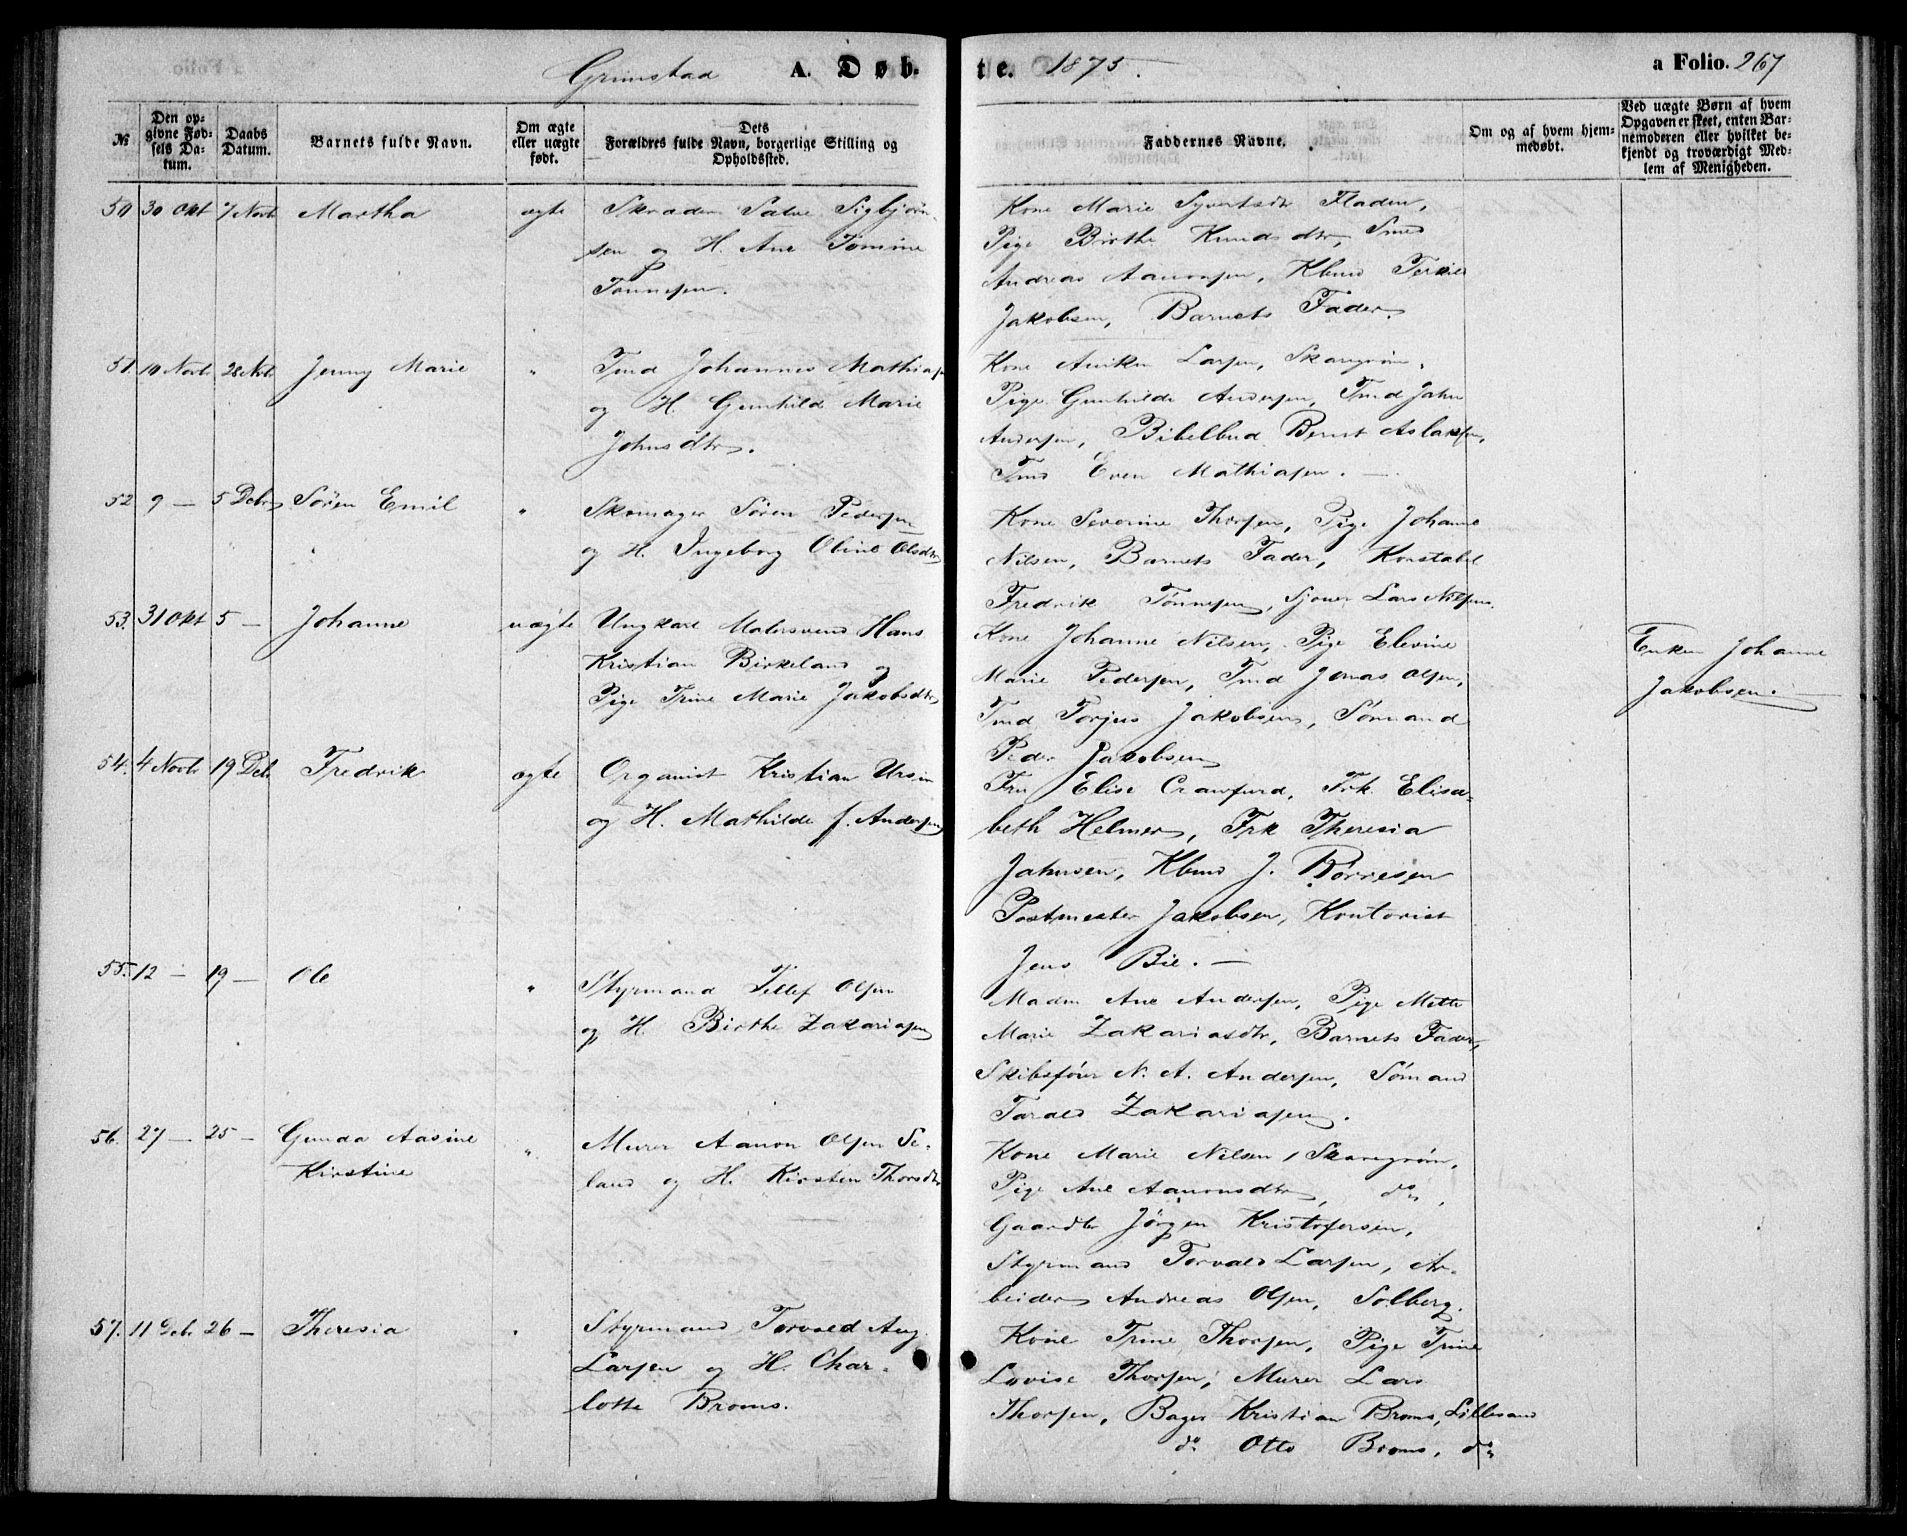 Grimstad A. Døb-
te. 1875. a Folio. 267
№ Den op-
givne Fød-
sels Da-
tum. Daabs
Datum. Barnets fulde Navn. Om ægte
eller uægte
født. Dets
Forældres fulde Navn, borgerlige Stilling og
Opholdssted.
Faddernes Navne. Om og af hvem hjem-
medøbt. Ved uægte Børn af hvem
Opgaven er skeet, enten Bar-
nemoderen eller hvilket be-
kjendt og troværdigt Med-
lem af Menigheden.
50 30 Okt 7 Novb Martha ægte Skræder Salve Sigbjørn-
sen og H. Ane Tomine
Tønnesen.
Kone Marie Syvertsdtr Fladen,
Pige Birthe Knudsdtr, Smed
Andreas Aanonsen, Kbmd Terkel
Jakobsen, Barnets Fader.
51. 10 Novb 28 Nvb Jenny Marie " Tmd Johannes Mathiasen
og H. Gunhild Marie
Johnsdtr.
Kone Aniken Larsen, Skaregrøm,
Pige Gunhilde Andersen, Tmd John
Andersen, Bibelbud Bernt Aslaksen,
Tmd Even Mathiasen. —
52 9 — 5 Debr Søren Emil " Skomager Søren Pedersen
og H. Ingeborg Oline Olsdtr
Kone Severine Thorsen, Pige Johanne
Nilsen, Barnets Fader, Konstabel
Fredrik Tønnesen, Sjouer Lars Nilsen.
53. 31 Okt 5 — Johanne uægte Ungkarl Malersvend Hans
Kristian Birkeland og
Pige Trine Marie Jakobsdtr
Kone Johanne Nilsen, Pige Elevine
Marie Pedersen, Tmd Jonas Olsen,
Tmd Torjus Jakobsen, Sømand
Peder Jakobsen
Enken Johanne
Jakobsen. —
54. 4 Novb 19 Deb. Fredrik ægte Organist Kristian Ursin
og H. Mathilde f. Andersen
Fru Elise Crawfurd, Frk. Elisa-
beth Helmer, Frk Theresia
Jahnsen, Kbmd J. Børresen
Postmester Jakobsen, Kontorist
Jens Bie. —
55. 12 — 19 — Ole " Styrmand Tellef Olsen
og H. Birthe Zakariasen
Madm Ane Andersen, Pige Mette
Marie Zakariasdtr, Barnets Fader,
Skibsfører N. A. Andersen, Sømand
Tarald Zakariasen.
56. 27 — 25 — Gunda Aasine
Kirstine " Murer Aanon Olsen Se-
land og H. Kirsten Thorsdtr
Kone Marie Nilsen, Skaregrøm,
Pige Ane Aanonsdtr, do,
Gaardbr Jørgen Kristofersen,
Styrmand Torvald Larsen, Ar-
beider Andreas Olsen, Solberg.
57. 11 Deb. 26 — Theresia " Styrmand Torvald Aug.
Larsen og H. Char-
lotte Broms.
Kone Trine Thorsen, Pige Trine
Lovise Thorsen, Murer Lars
Thorsen, Bager Kristian Broms, Lillesand
do Otto Broms, do